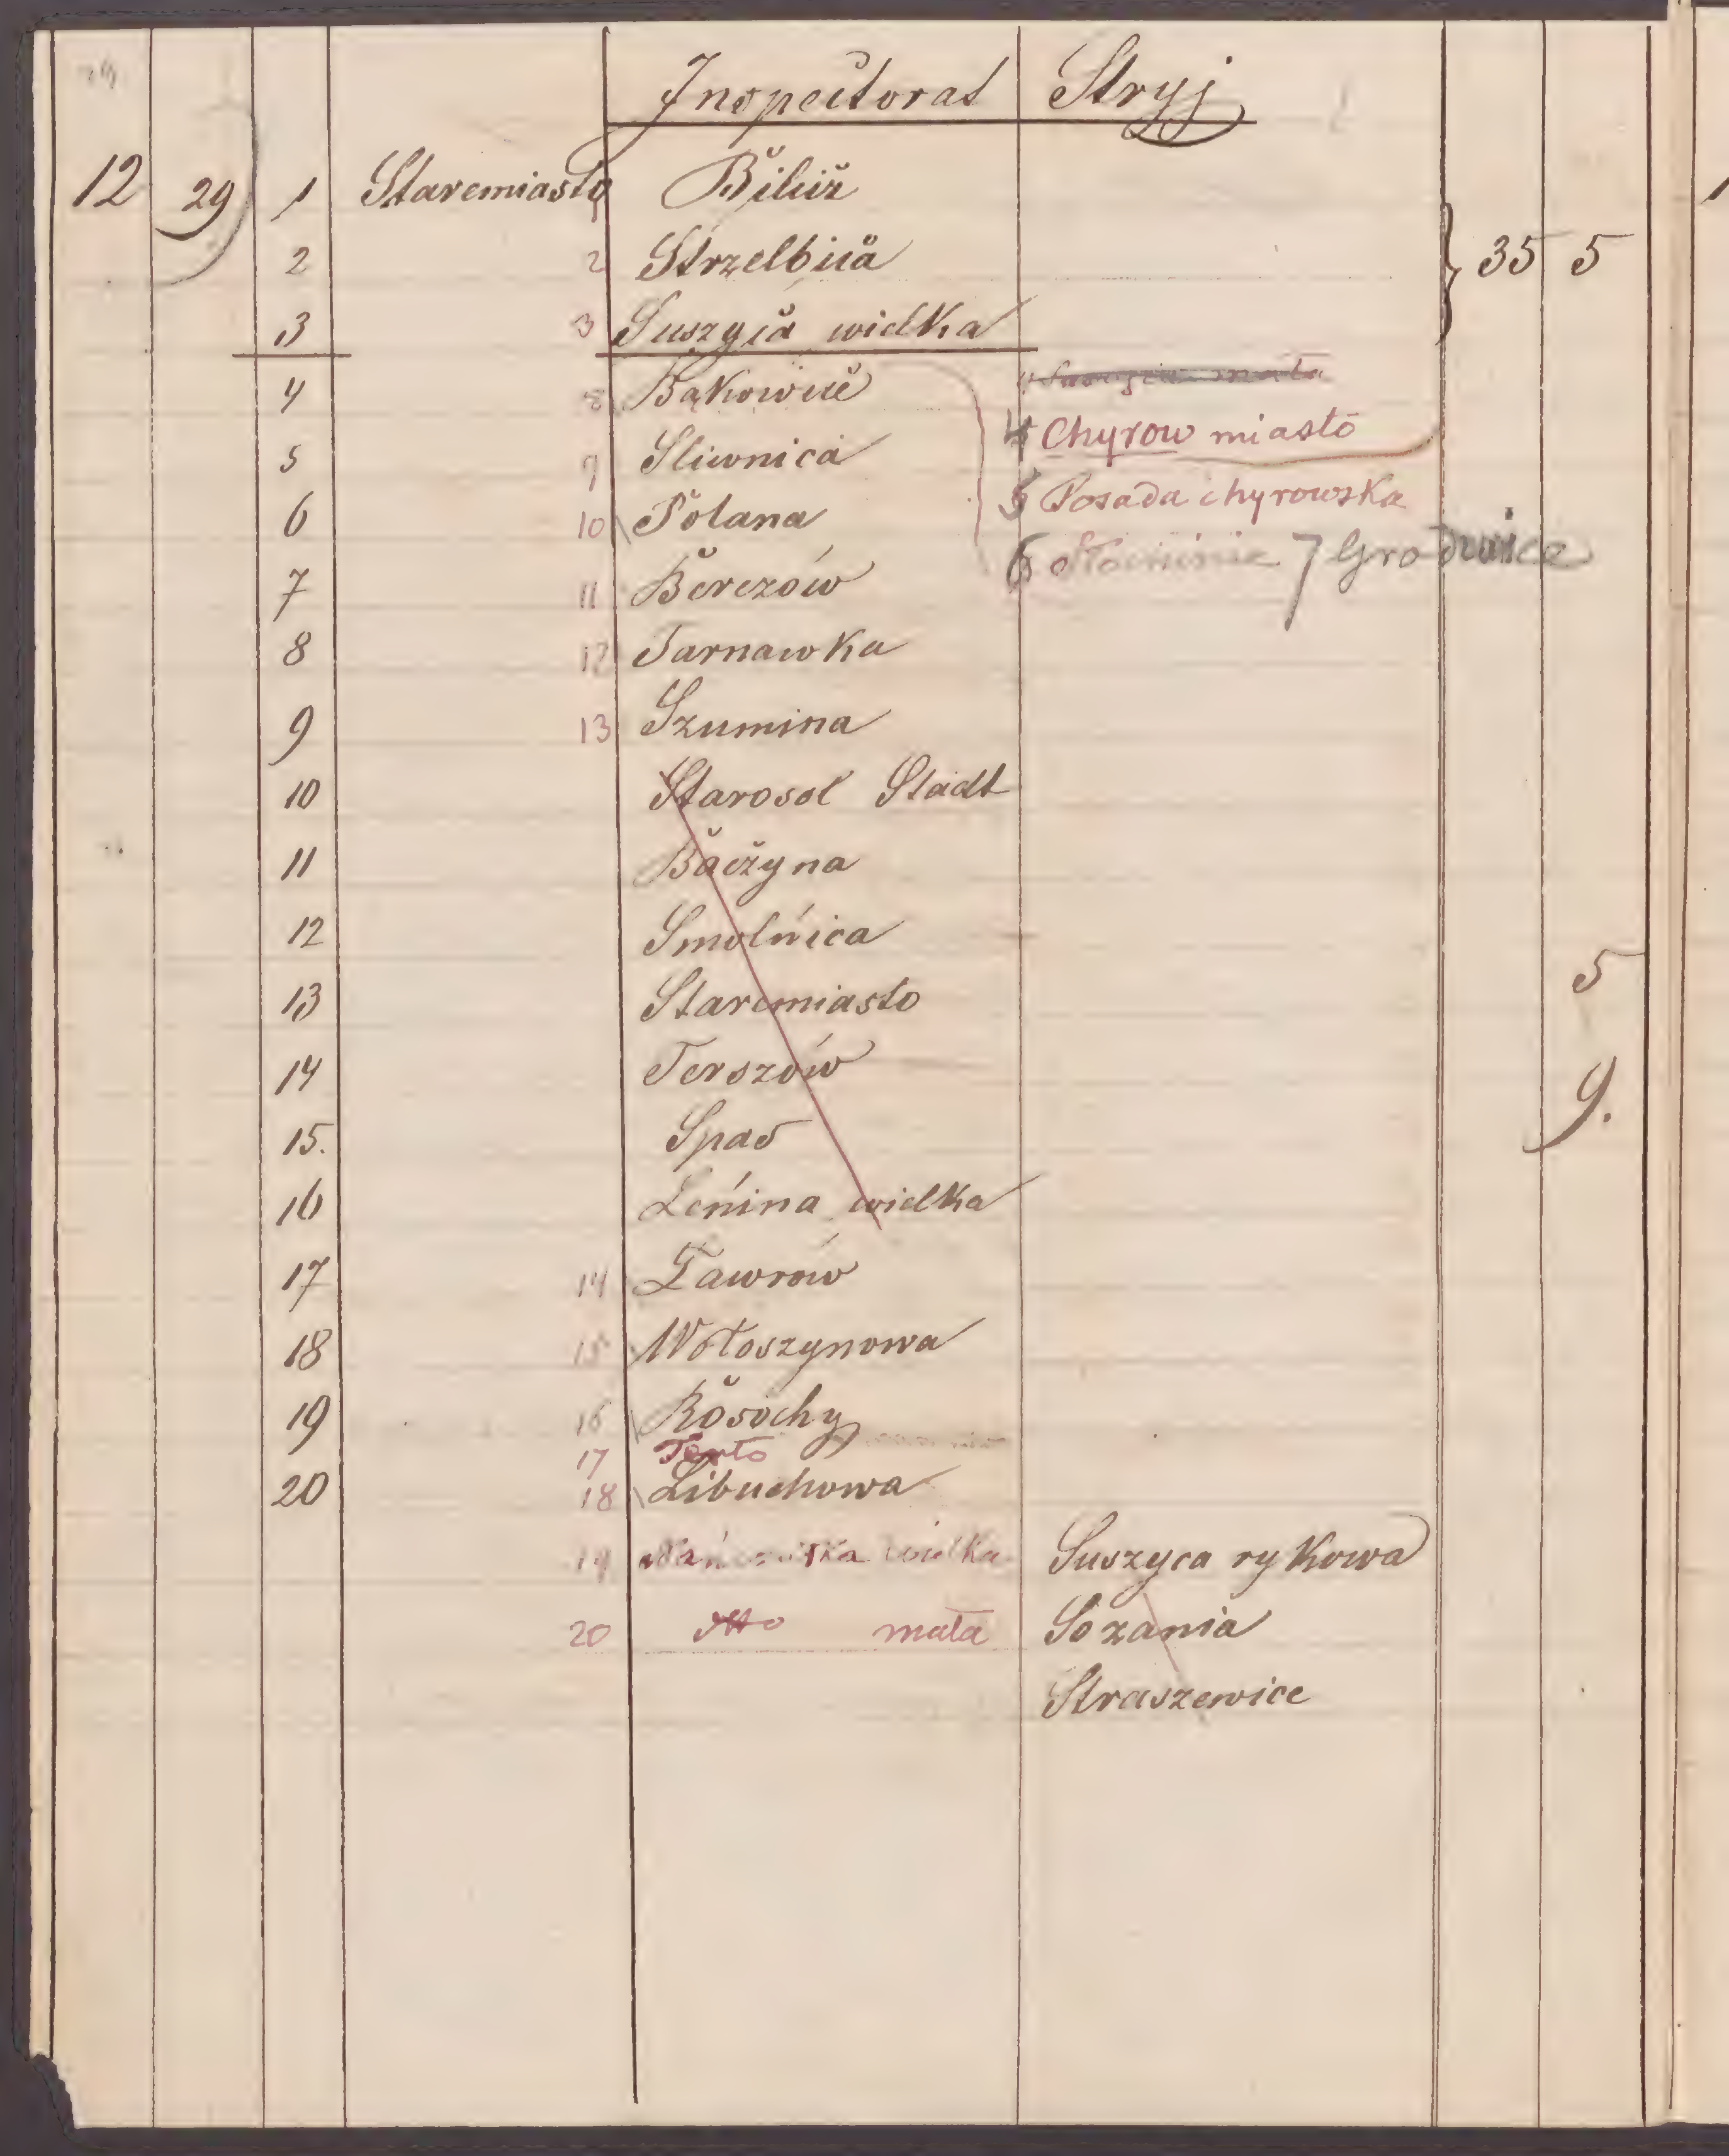 Inspectorat Stryj
12 29 1 Staremiasto 1 Bilicz
2 2 Strzelbica 35 5
3 3 Suszyca wielka
4 8 Bąkowice
4 Chyrow miasto
5 9 Sliwnica
5 Posada chyrowska
6 10 Polana
6 7 Grodzwice
7 11 Berezów
8 12 Tarnawka
9 13 Szumina
10 Starosol Stadt
11 Baczyna
12 Smolnica
5
13 Staremiasto
14 Terszów
9.
15. Spas
16 Lenina wielka
17 14 Ławrów
18 15 Wołoszynowa
19 16 Rosochy
17 Terło
20 18 Libuchowa
19 wielka Suszyca rykowa
20 dtto mała Sozania
Straszewice